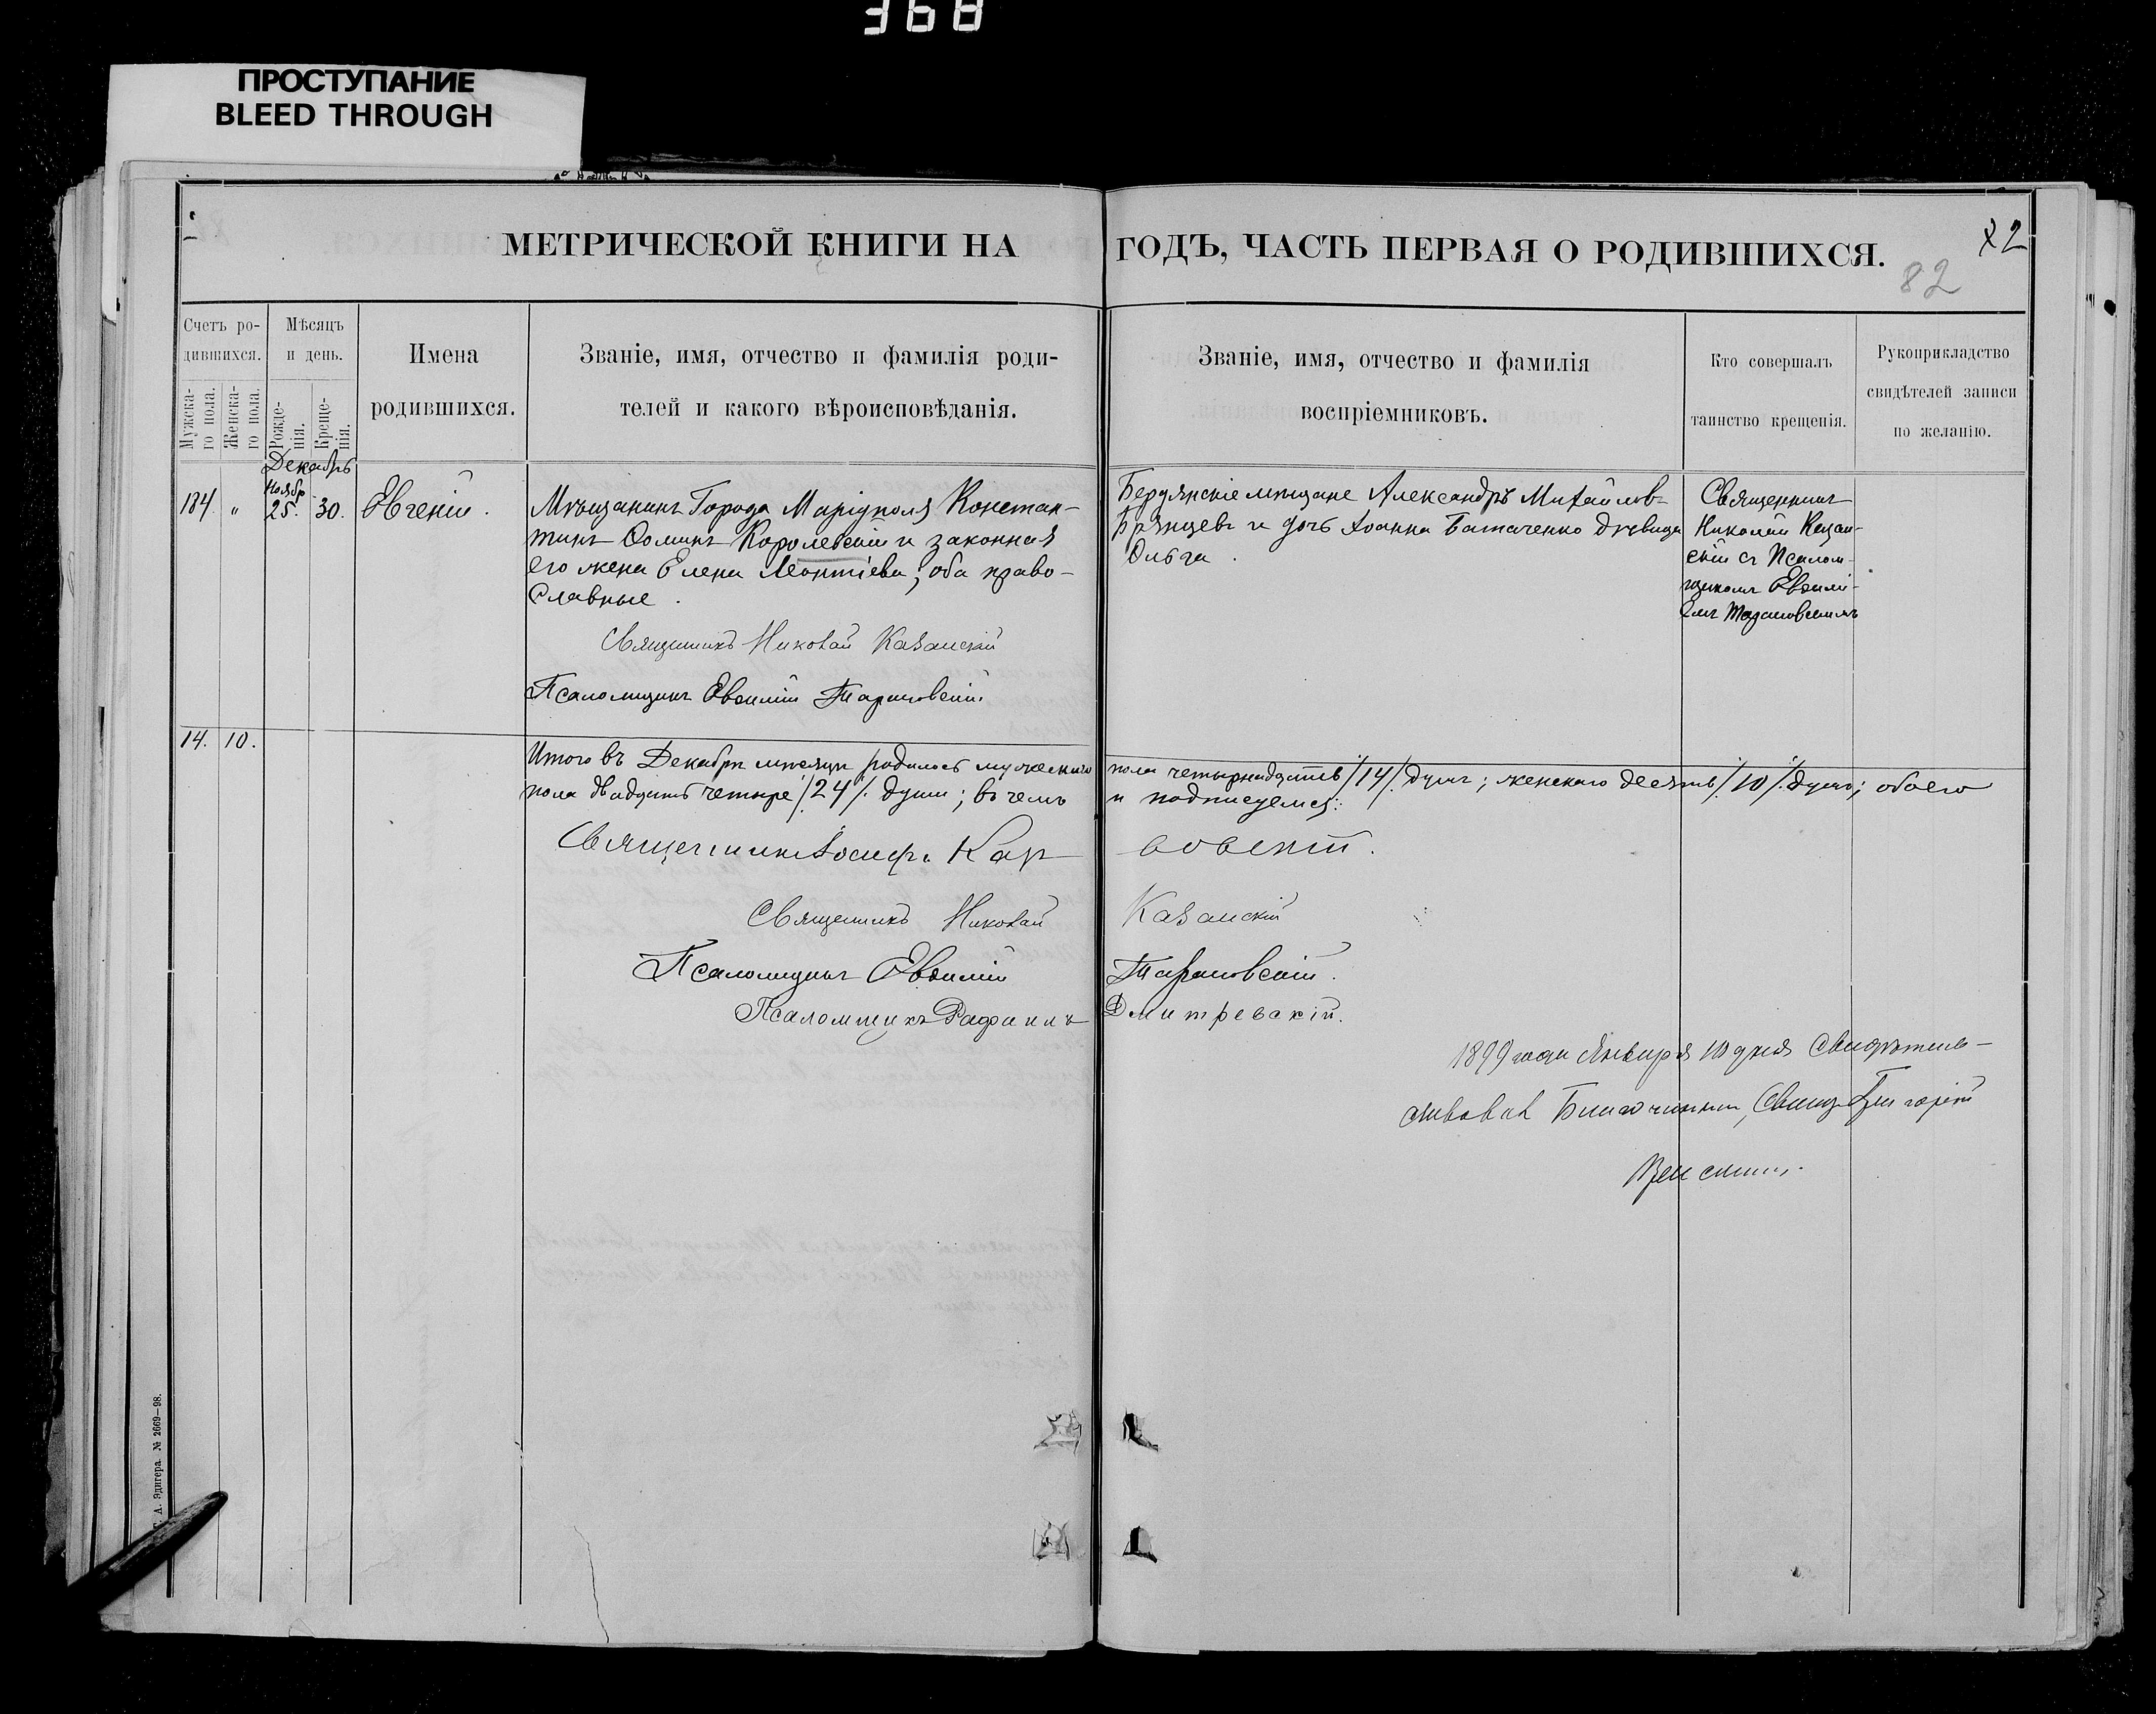 368
ПРОСТУПАНИЕ
BLEED THROUGH
МЕТРИЧЕСКОЙ КНИГИ НА ГОДЪ, ЧАСТЬ ПЕРВАЯ О РОДИВШИХСЯ.
82
Счетъ ро-
дившихся.
Мужска-
го пола.
Женска-
го пола.
Мѣсяцъ
и день.
Рожде-
нія.
Креще-
нія.
Имена
родившихся.
Званіе, имя, отчество и фамилія роди-
телей и какого вѣроисповѣданія.
Званіе, имя, отчество и фамилія
воспріемниковъ.
Кто совершалъ
таинство крещенія.
Рукоприкладство
свидѣтелей записи
по желанію.
Декабрь
Ноябр
184. " 25. 30. Евгеній.
Мѣщанинъ Города Маріуполя Констан-
тинъ Ѳоминъ Королевскій и законная
его жена Елена Леонтіева; оба право-
славные.
Священникъ Николай Казанскій
Псаломщикъ Евѳимій Тарановскій
Бердянскіе мѣщане Александръ Михайловъ
Брянцевъ и дочь Іоанна дѣвица
Ольга.
Священникъ
Николай Казан-
скій съ Псалом-
щикомъ Евѳимі-
емъ Тарановскимъ
14. 10.
Итого въ Декабрѣ мѣсяцѣ родилось мужескаго пола четырнадцать /14/ душъ; женскаго десять /10/ душъ; обоего
пола двадцать четыре /24/ души; въ чемъ и подписуемся:
Священникъ Іосифъ Кар-
Священникъ Николай Казанскій
Псаломщикъ Евѳимій Тарановскій.
Псаломщикъ Рафаилъ Дмитревскій.
1899 года Января 10 дня Свидѣтель-
ствовалъ Благочинный, Свящ. Григорій
Т. А. Эдигера. № 2669—98.